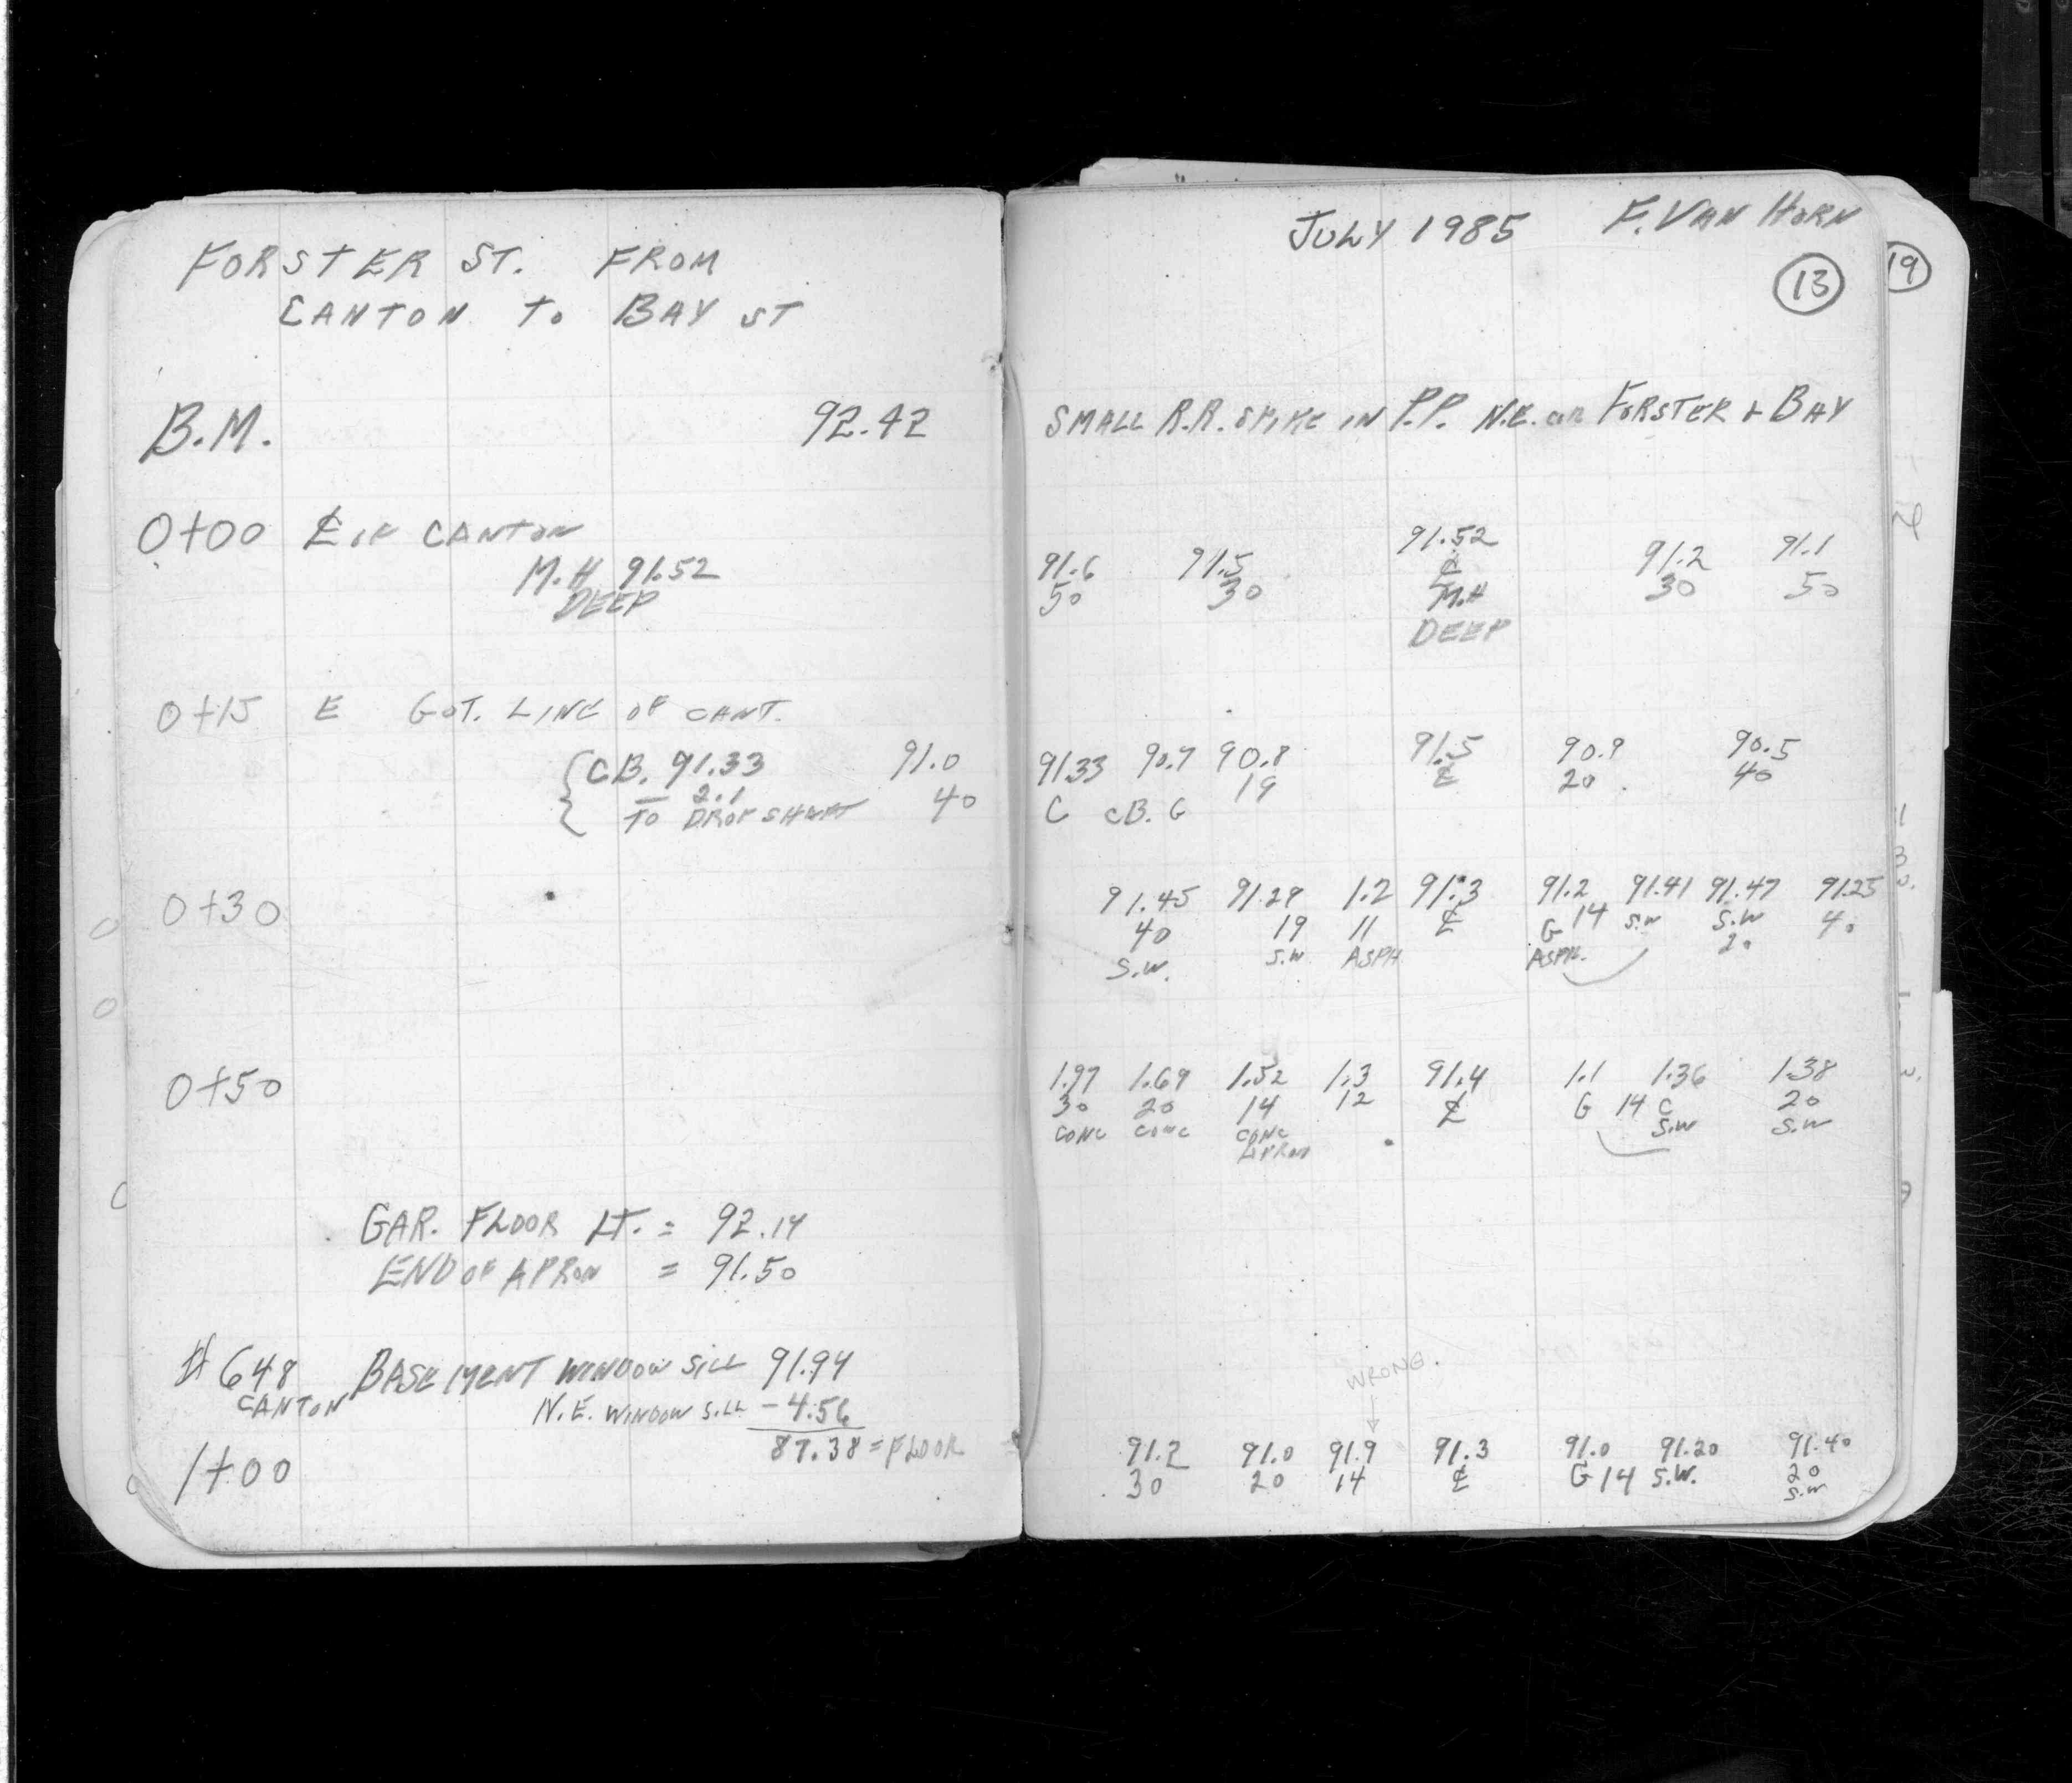 FORSTER ST. FROM
CANTON TO BAY ST
B.M. 92.42
0+00 ℄ OF CANTON
M.H 91.52
DEEP
0+15 E GUT. LINE OF CANT.
CB. 91.33 91.0
2.1 40
TO DROP SHAFT
0+30
0+50
GAR. FLOOR LT. = 92.14
END OF APRON = 91.50
#648 BASEMENT WINDOW SILL 91.94
CANTON N.E. WINDOW SILL -4.56
87.38 = FLOOR
1+00
JULY 1985 F. VAN HORN
13
19
SMALL R.R. SPIKE IN P.P. N.E. COR FORSTER & BAY
91.6 91.5 91.52 91.2 91.1
50 30 ℄ 30 50
M.H
DEEP
91.33 90.7 90.8 91.5 90.9 90.5
19 ℄ 20 40
C CB. G
91.45 91.29 1.2 91.3 91.2 91.41 91.47 91.25
40 19 11 ℄ G 14 S.W S.W 40
S.W. S.W ASPH ASPH. 20
1.97 1.69 1.52 1.3 91.4 1.1 1.36 1.38
30 20 14 12 ℄ G 14 C 20
CONC CONC CONC S.W S.W
APRON
WRONG.
91.2 91.0 91.9 91.3 91.0 91.20 91.40
30 20 14 ℄ G 14 S.W. 20
S.W